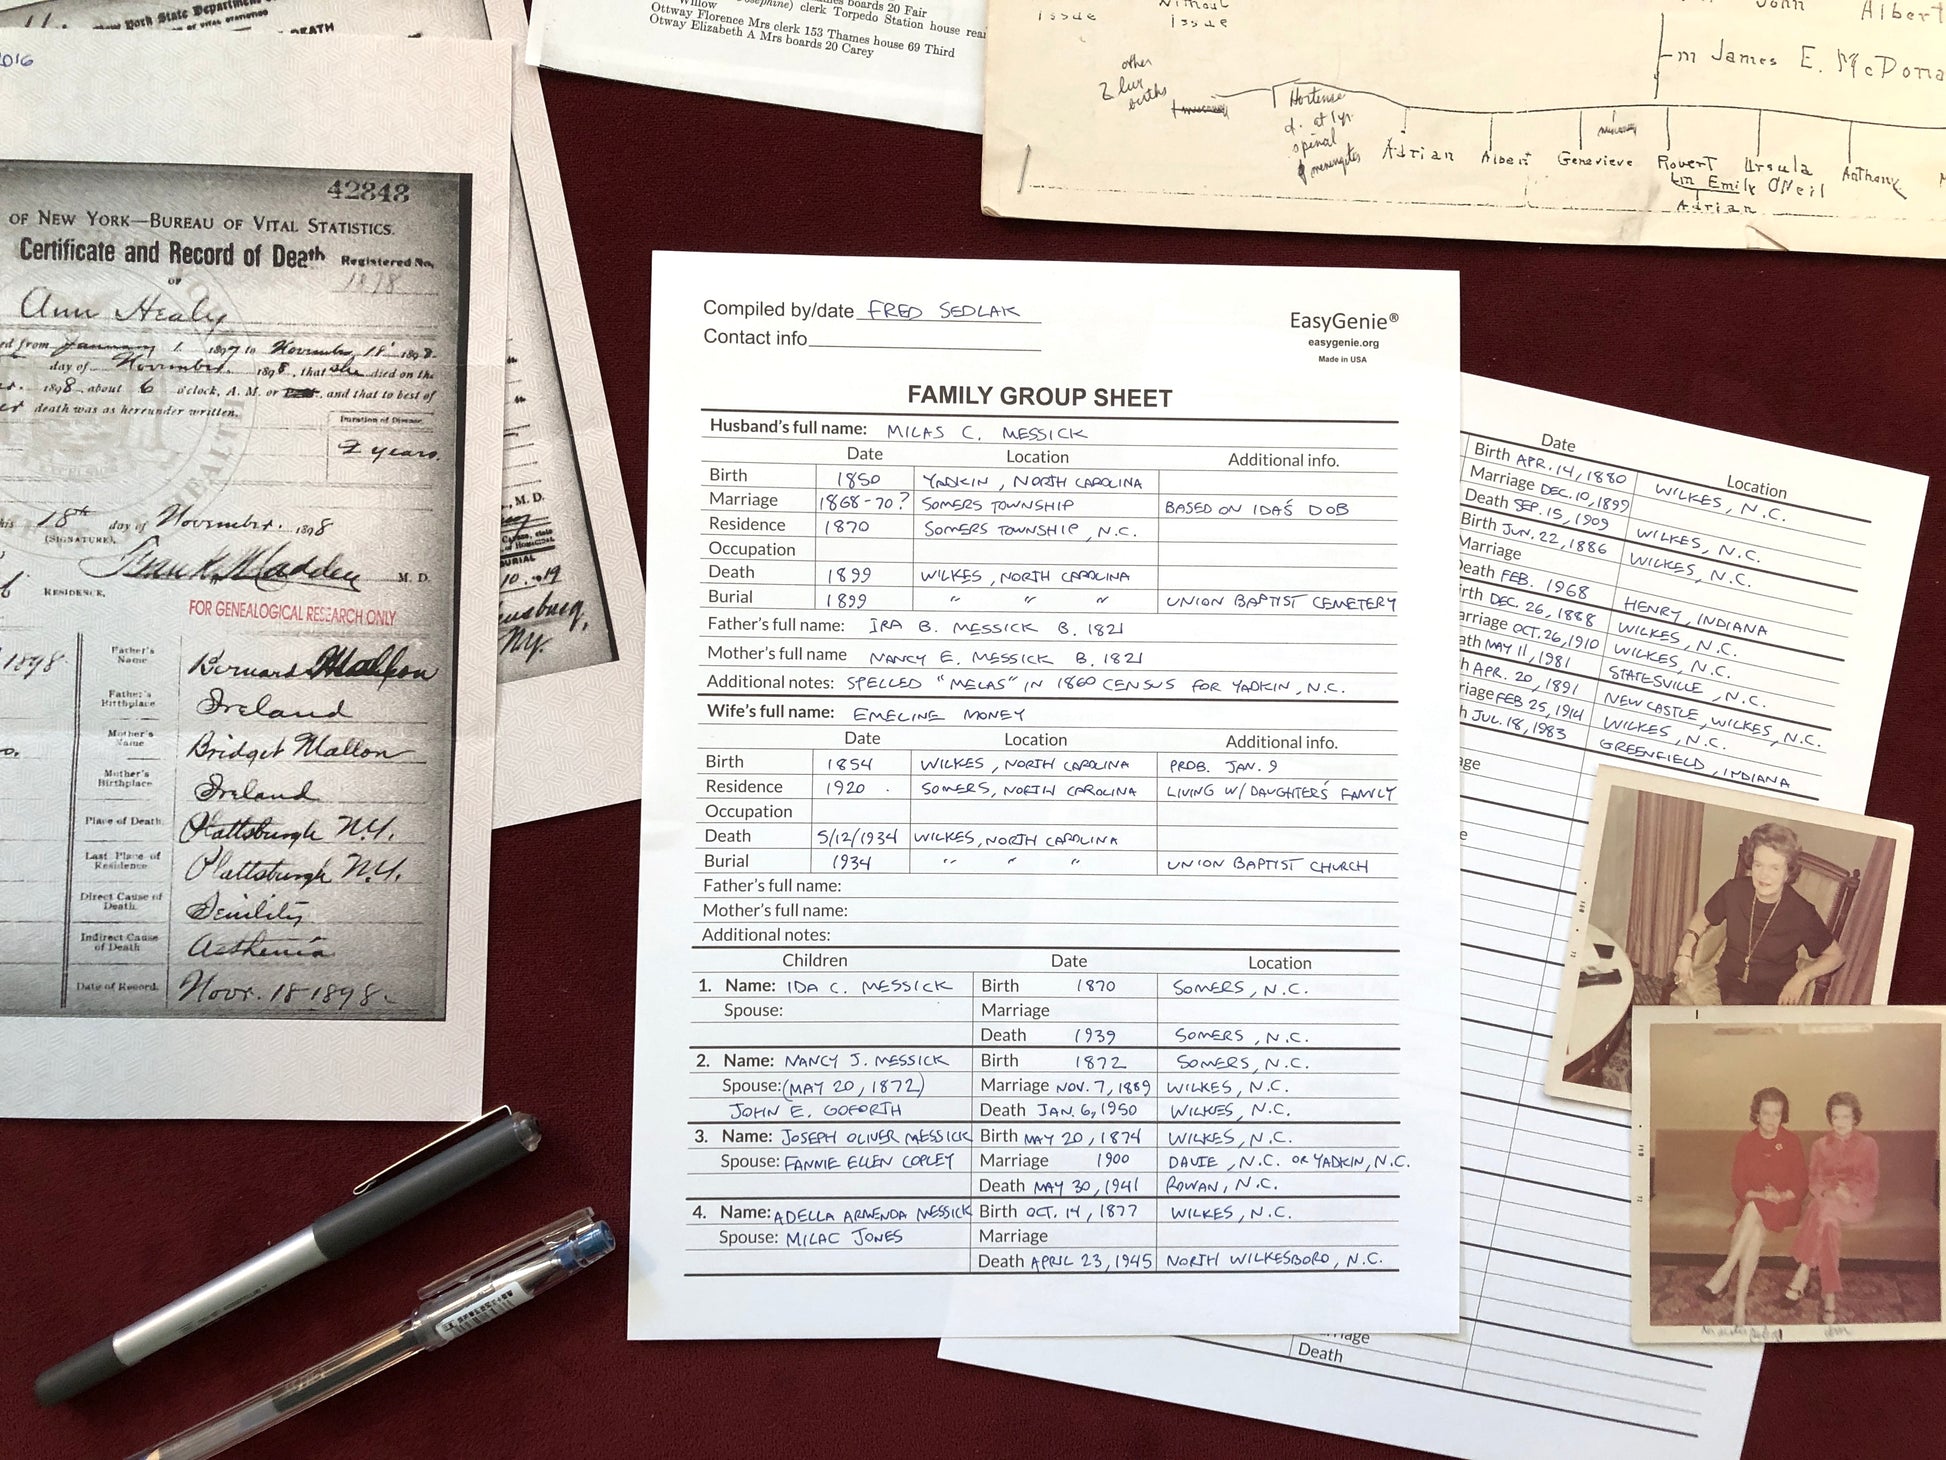 2016
42843
OF NEW YORK—BUREAU OF VITAL STATISTICS.
Certificate and Record of Death
Registered No.
OF
1878
Ann Healy
January 1 1897 to November 18 1898
day of November 1898, that she died on the
1898 about 6 o'clock, A. M. or and that to best of
death was as hereunder written.
Duration of Disease
2 years.
18th day of November 1898
(SIGNATURE),
Frank Madden M. D.
RESIDENCE,
FOR GENEALOGICAL RESEARCH ONLY
1898
Father's Name Bernard
Father's Birthplace Ireland
Mother's Name Bridget Mallon
Mother's Birthplace Ireland
Place of Death Plattsburgh N.Y.
Last Place of Residence Plattsburgh N.Y.
Direct Cause of Death Senility
Indirect Cause of Death Asthenia
Date of Record Novr. 18 1898
New York State Department
OF VITAL STATISTICS
DEATH
M. D.
BURIAL
N.Y.
clerk Torpedo Station house rear
boards 20 Fair
Willow
Ottway Florence Mrs clerk 153 Thames house 69 Third
Otway Elizabeth A Mrs boards 20 Carey
issue
without issue
John
Albert
m James E. McDona
other
2 liv births
Hortense
d. at 1yr.
spinal
meningites
Adrian
Albert
Genevieve
Robert
m Emily O'Neil
Adrian
Ursula
Anthony
Compiled by/date FRED SEDLAK
Contact info
EasyGenie®
easygenie.org
Made in USA
FAMILY GROUP SHEET
Husband's full name: MILAS C. MESSICK
Date Location Additional info.
Birth 1850 YADKIN, NORTH CAROLINA
Marriage 1868-70? SOMERS TOWNSHIP BASED ON IDA'S DOB
Residence 1870 SOMERS TOWNSHIP, N.C.
Occupation
Death 1899 WILKES, NORTH CAROLINA
Burial 1899 " " " UNION BAPTIST CEMETERY
Father's full name: IRA B. MESSICK B. 1821
Mother's full name NANCY E. MESSICK B. 1821
Additional notes: SPELLED "MELAS" IN 1860 CENSUS FOR YADKIN, N.C.
Wife's full name: EMELINE MONEY
Date Location Additional info.
Birth 1854 WILKES, NORTH CAROLINA PROB. JAN. 9
Residence 1920 SOMERS, NORTH CAROLINA LIVING W/ DAUGHTER'S FAMILY
Occupation
Death 5/12/1934 WILKES, NORTH CAROLINA
Burial 1934 " " " UNION BAPTIST CHURCH
Father's full name:
Mother's full name:
Additional notes:
Children Date Location
1. Name: IDA C. MESSICK Birth 1870 SOMERS, N.C.
Spouse: Marriage
Death 1939 SOMERS, N.C.
2. Name: NANCY J. MESSICK Birth 1872 SOMERS, N.C.
Spouse: (MAY 20, 1872) Marriage NOV. 7, 1889 WILKES, N.C.
JOHN E. GOFORTH Death JAN. 6, 1950 WILKES, N.C.
3. Name: JOSEPH OLIVER MESSICK Birth MAY 20, 1874 WILKES, N.C.
Spouse: FANNIE ELLEN COPLEY Marriage 1900 DAVIE, N.C. OR YADKIN, N.C.
Death MAY 30, 1941 ROWAN, N.C.
4. Name: ADELLA ARMENDA MESSICK Birth OCT. 14, 1877 WILKES, N.C.
Spouse: MILAC JONES Marriage
Death APRIL 23, 1945 NORTH WILKESBORO, N.C.
Date Location
Birth APR. 14, 1880 WILKES, N.C.
Marriage DEC. 10, 1899
Death SEP. 15, 1909 WILKES, N.C.
Birth JUN. 22, 1886 WILKES, N.C.
Marriage
Death FEB. 1968 HENRY, INDIANA
Birth DEC. 26, 1888 WILKES, N.C.
Marriage OCT. 26, 1910 WILKES, N.C.
Death MAY 11, 1981 STATESVILLE, N.C.
APR. 20, 1891 NEWCASTLE, WILKES, N.C.
FEB 25, 1914 WILKES, N.C.
JUL. 18, 1983 GREENFIELD, INDIANA
Death